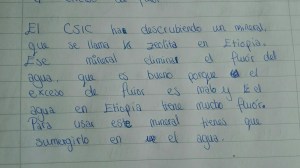 El CSIC ha descrubiendo un mineral
que se llama la zeolita en Etiopia.
Ese mineral eliminar el fluor del
agua, que es bueno porque el
exceso de fluor es malo y el
agua en Etiopia tiene mucho fluor.
Para usar este mineral tienes que
sumergirlo en el agua.